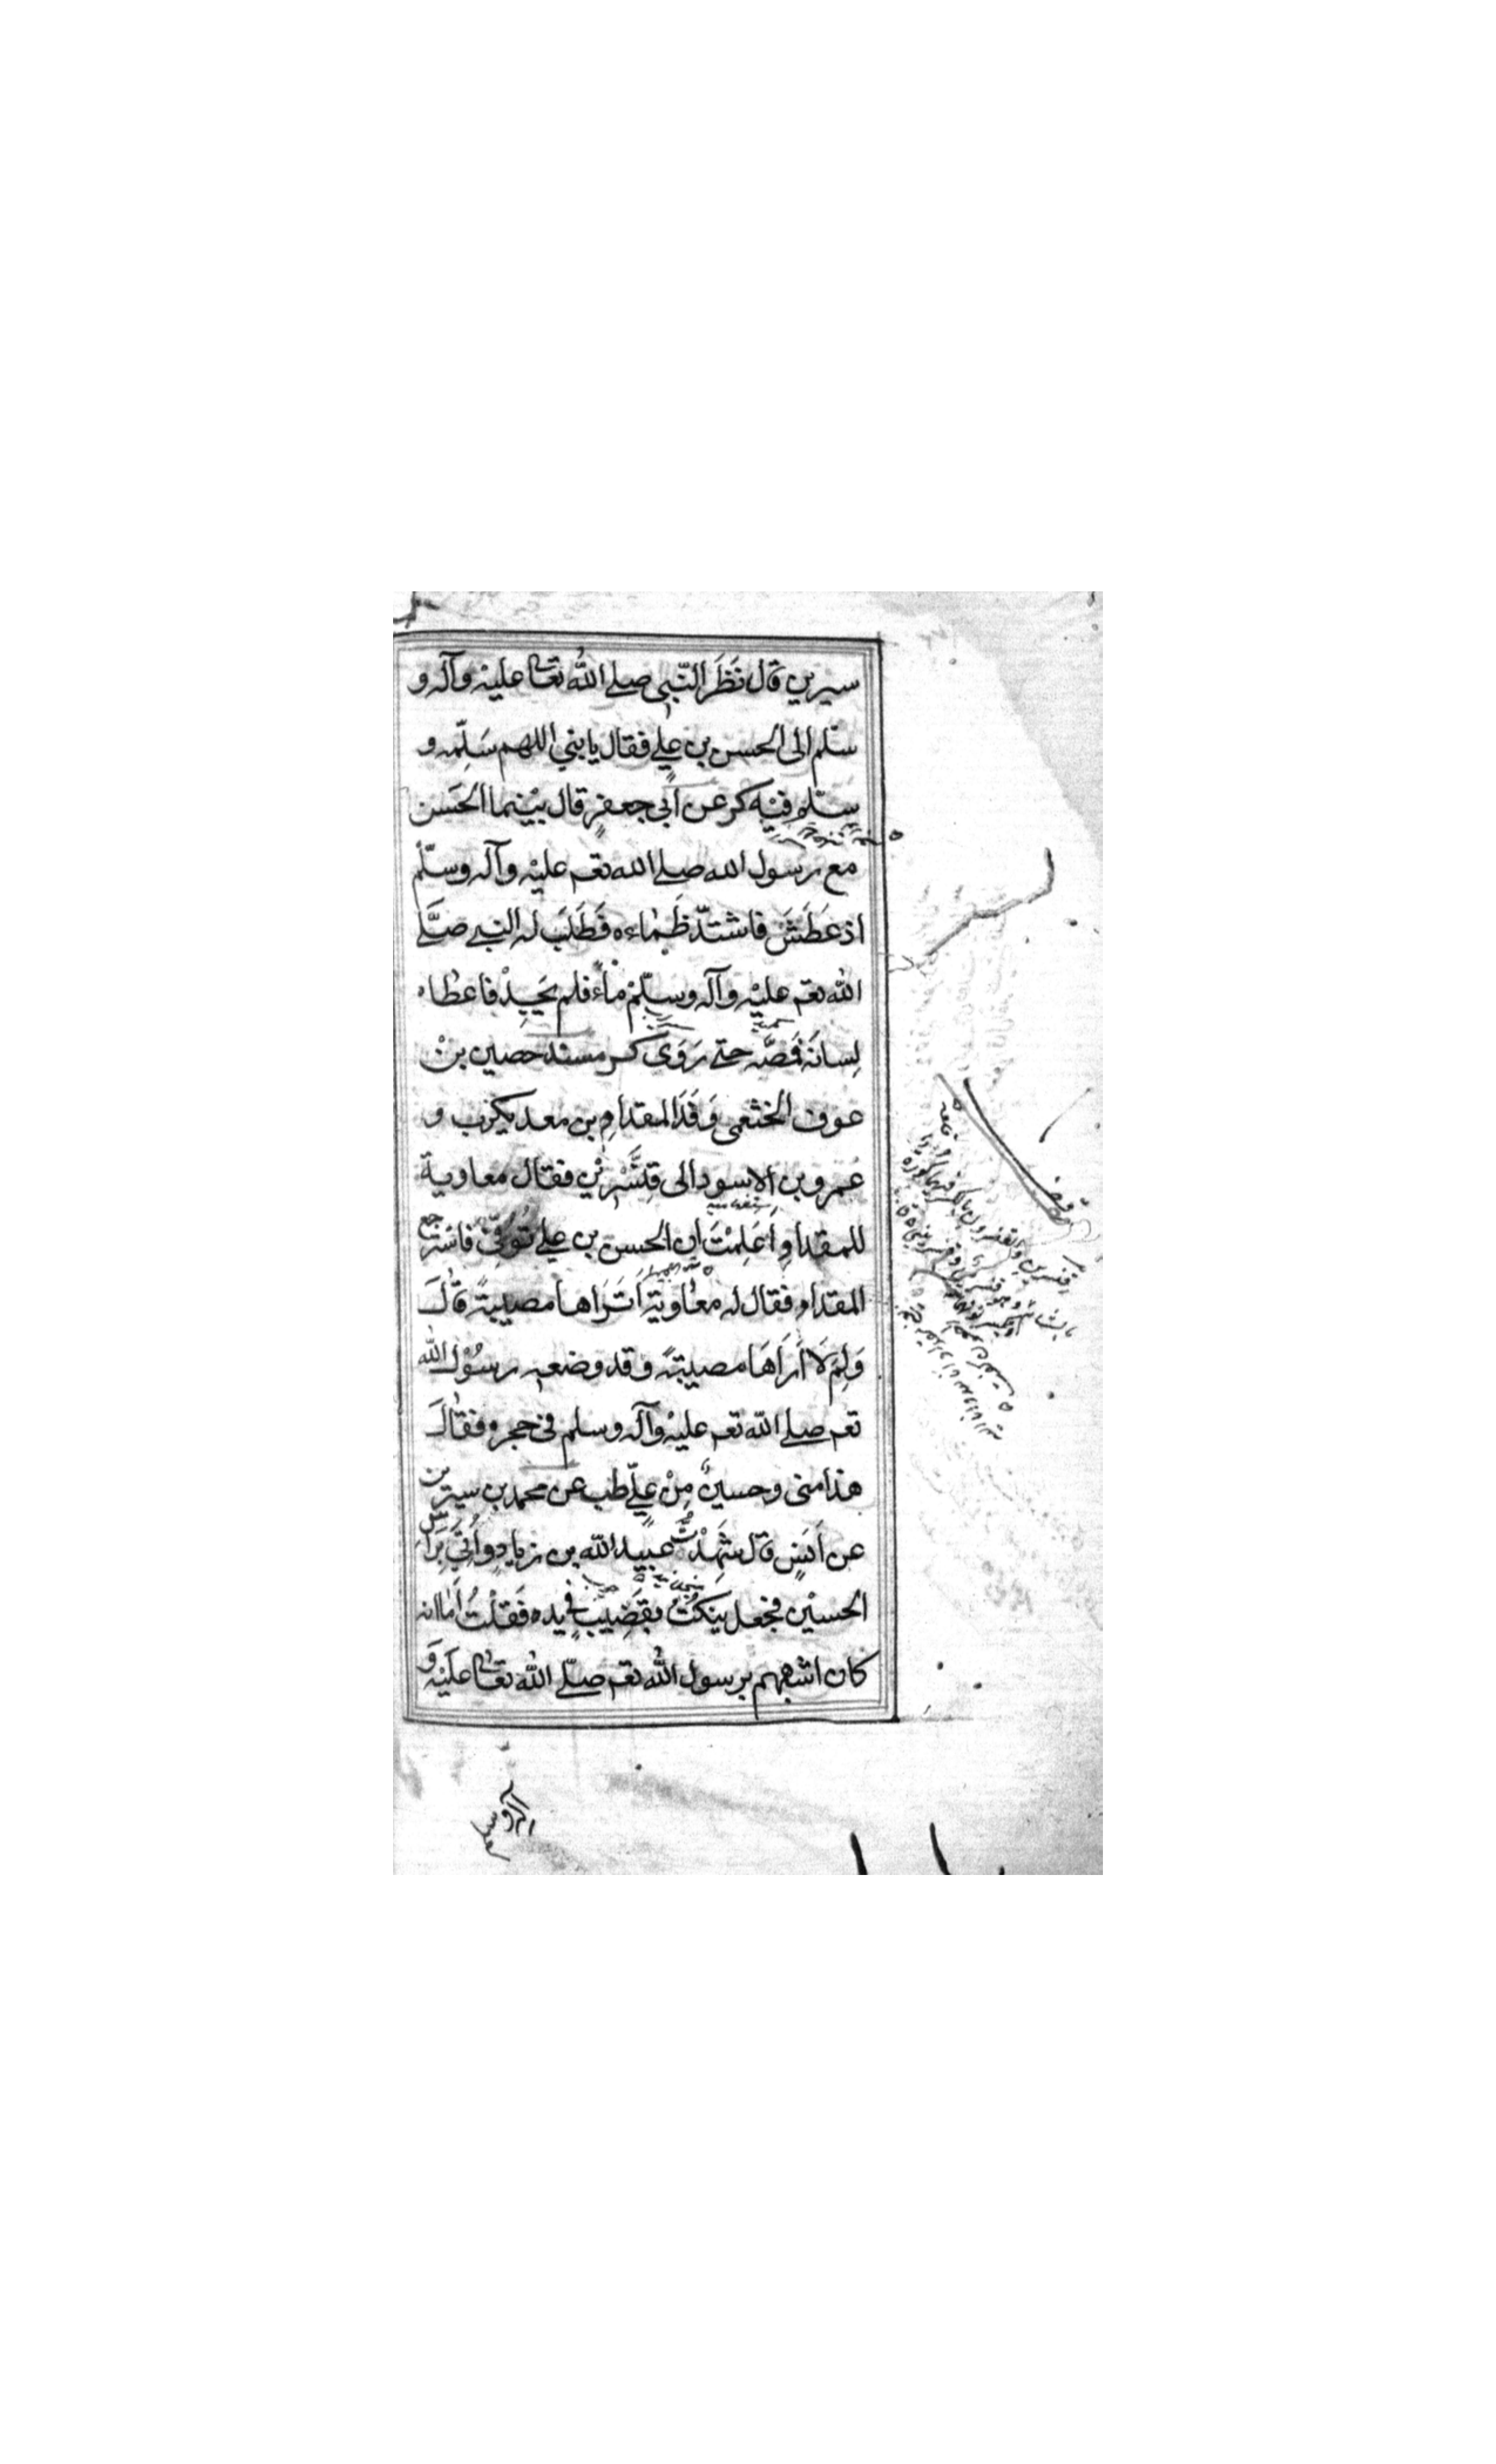 سيرين قال نَظَرَ النّبي صلے اللّٰه تعالٰے عليْه وآله و
سلّم الى الحسن بن علے فقال يا بني اللهم سَلِّمه و
سلّم فيْه كر عن ابي جعفرٍ قال بيْنما الحَسن
مع رسول الله صلے الله تعم عليْه وآله وسلّم
اذ عَطَشَ فاشتدّ ظَمٰاءه فَطَلَبَ له النبي صَلَّے
اللّٰه تعم عليْه وآله وسلّمْ ماءً فلم يَجِدْ فاعطاه
لِسانَه فَمَصَّه حتے رَوَىَ كر مسند حصين بنْ
عوف الخثعمى وَفَدَ المقدامِ بن معديكرب و
عَمرو بن الاسود الى قِنَّسْرِيْن فقال معاوية
للمقدامِ اَعَلِمْتَ ان الحسن بن علے تُوُفِّيَ فاسْترجع
المقدام فقال له معٰاوية اَتَرَاها مصيبةً قالَ
وَلِمَ لَا اَرَاهَا مصيبتهً وقد وضعه رسُوْل اللّٰه
تعم صلے اللّٰه تعم عليْه وآله وسلم في حجره فقالَ
هذا منى وحسينٌ مِنْ علِّے طب عن محمد بن سيرين
عن اَنَسٍ قال شَهِدْتُ عبيد اللّٰه بن زيادٍ واُتِيَ بِرَاْس
الحسيْن فجعل ينكتُ بقَضِيْبٍ في يده فَقلْتُ اَمٰا انه
كان اشبههم برسول اللّٰه تعم صلّے اللّٰه تعالٰے عليْه وَ
آله وسلم